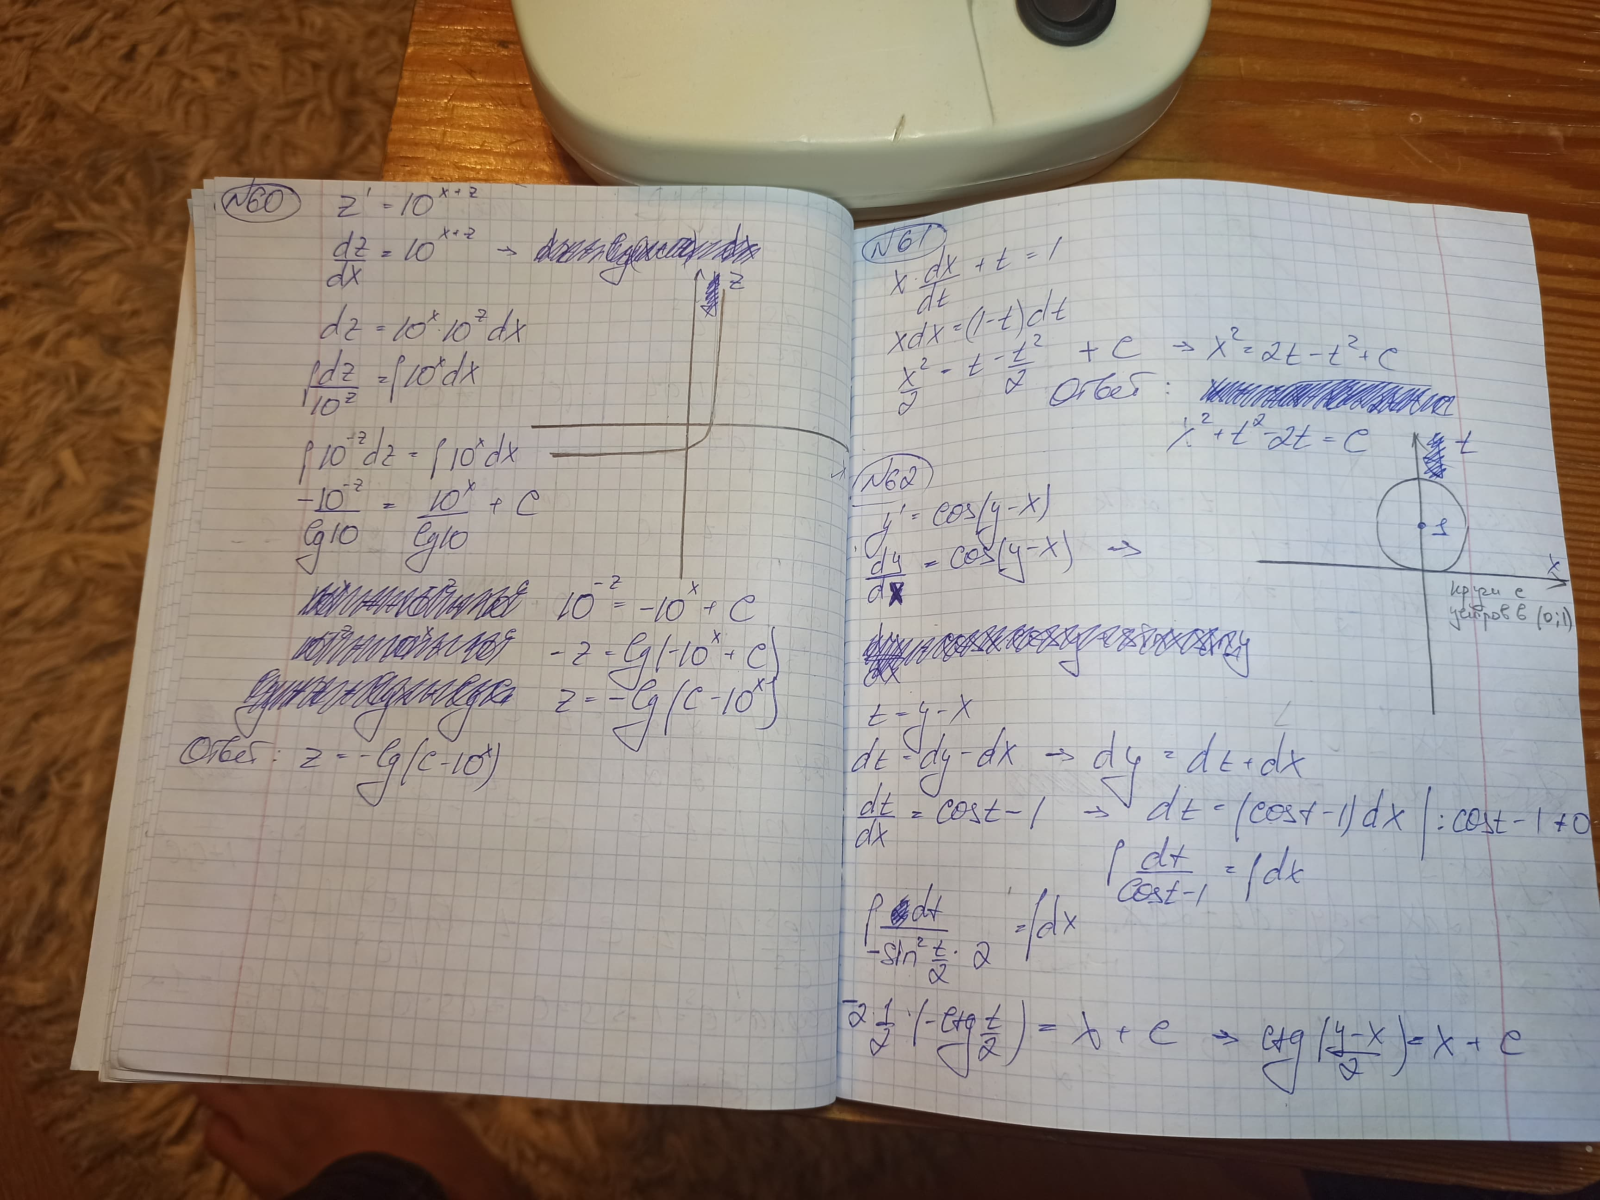 №60
z' = 10^{x+z}
dz/dx = 10^{x+z} →
z
dz = 10^x · 10^z dx
∫ dz/10^z = ∫ 10^x dx
∫ 10^{-z} dz = ∫ 10^x dx
-10^{-z}/lg10 = 10^x/lg10 + C
10^{-z} = -10^x + C
-z = lg(-10^x + C)
z = -lg(C - 10^x)
Ответ: z = -lg(C - 10^x)
№61
x · dx/dt + t = 1
xdx = (1-t)dt
x²/2 = t - t²/2 + C → x² = 2t - t² + C
Ответ:
x² + t² - 2t = C
t
1
x
круги с
центров в (0;1)
№62
y' = cos(y-x)
dy/dx = cos(y-x) →
t = y - x
dt = dy - dx → dy = dt + dx
dt/dx = cost - 1 → dt = (cost - 1)dx | : cost - 1 ≠ 0
∫ dt/(cost-1) = ∫ dx
∫ dt/(-sin² t/2 · 2) = ∫ dx
-2 · 1/2 · (-ctg t/2) = x + C → ctg((y-x)/2) = x + C